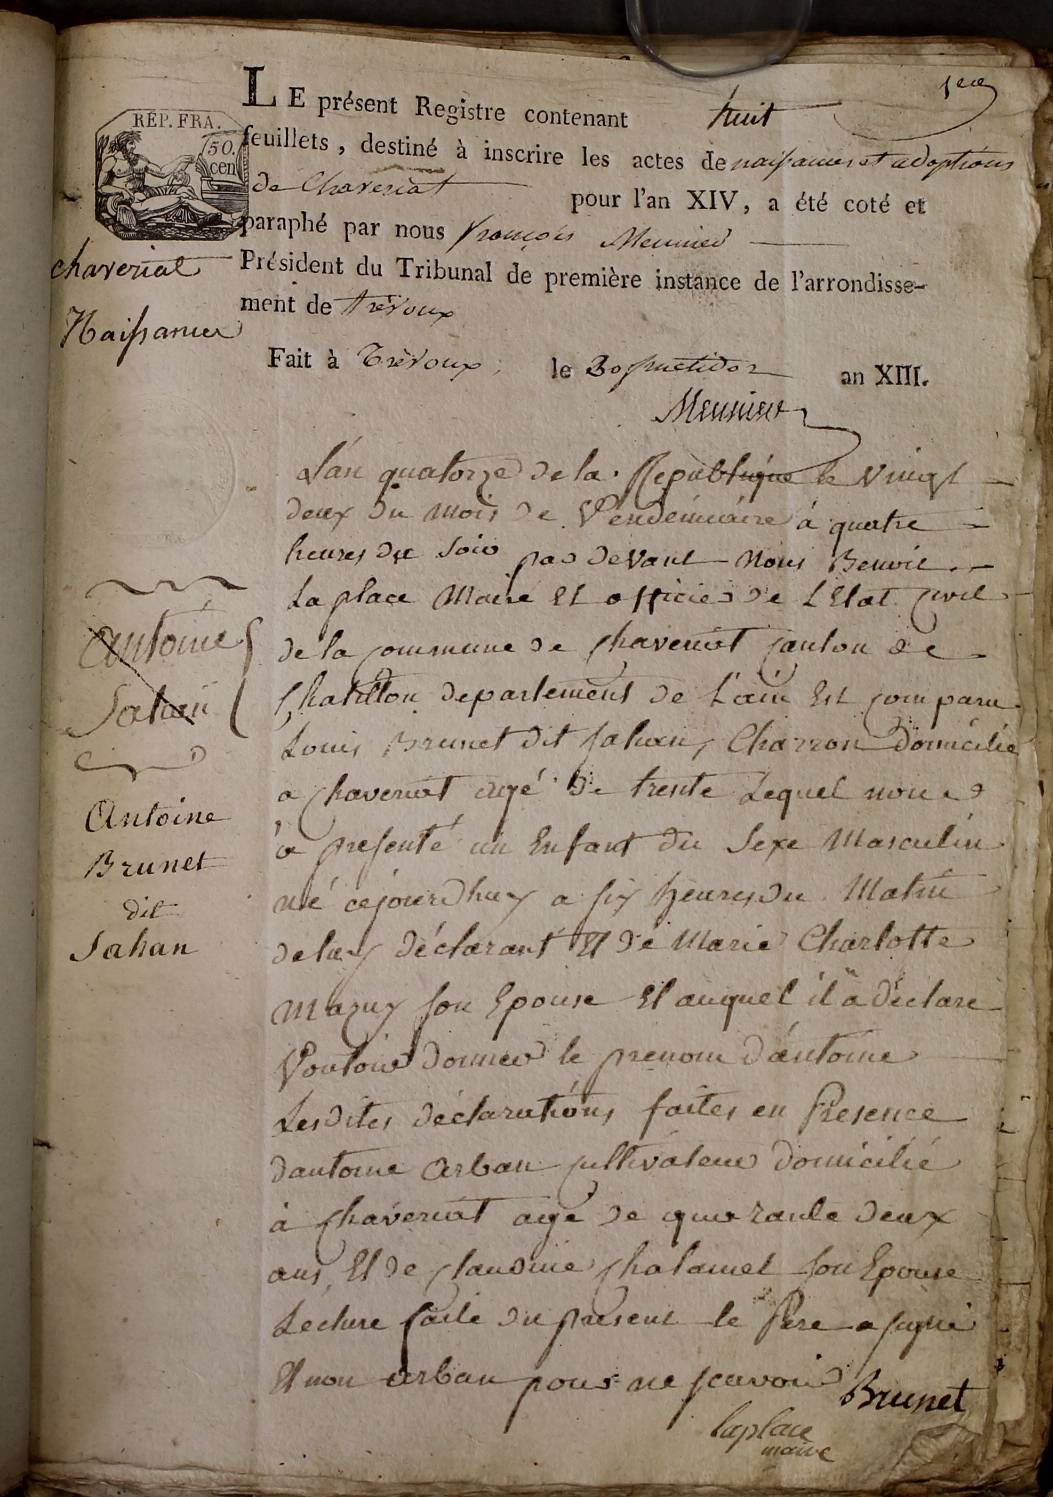 1ere
LE présent Registre contenant huit
feuillets, destiné à inscrire les actes de naissances et adoptions
de Chaveriat pour l'an XIV, a été coté et
paraphé par nous françois Meunier
Président du Tribunal de première instance de l'arrondisse-
ment de trévoux
Fait à Trévoux, le fructidor an XIII.
Meunier
RÉP. FRA.
50.
cen
chaveriat
Naissances
L'an quatorze de la Republique le Vingt
deux du mois de Vendémiaire à quatre
heures du soir par devant Nous Benoit
Laplace Maire Et officier de L'Etat Civil
de la Commune de Chaveriat Canton de
Chatillon departement de L'ain Est Comparu
Louis Brunet dit Jahan, Charron Domicilié
a Chaveriat agé de trente Lequel nous
a presenté un Enfant du Sexe Masculin
né cejourdhuy a six heures du Matin
de luy déclarant Et de Marie Charlotte
Mazuy son Epouse Et auquel il a déclaré
Vouloir donner le prenom d'antoine
Lesdites déclarations faites en Presence
dantoine Arban Cultivateur domicilié
à Chaveriat agé de quarante deux
ans, Et de Claudine Chalamel son Epouse
Lecture faite du present le Pere a signé
Et non arban pour ne scavoir
Brunet
laplace
maire
Antoine
Jahan
Antoine
Brunet
dit
Jahan